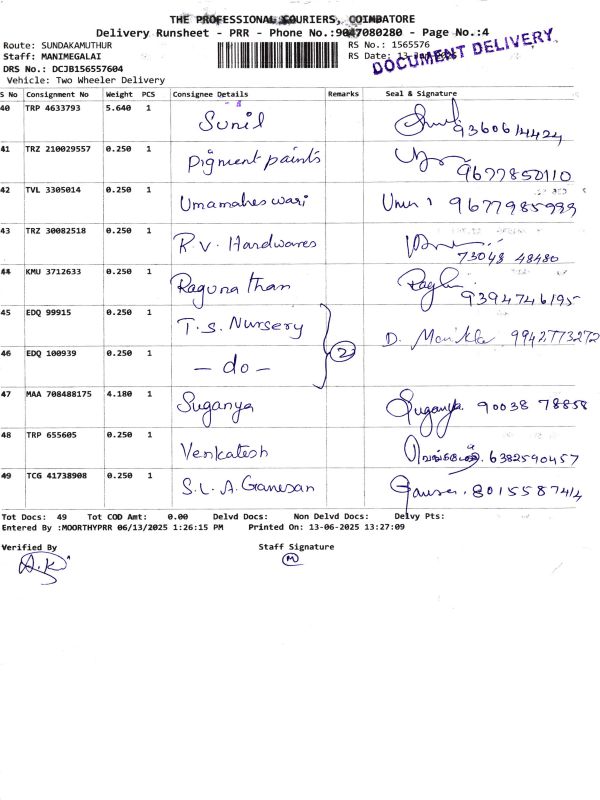 THE PROFESSIONAL COURIERS, COIMBATORE
Delivery Runsheet - PRR - Phone No.:9047080280 - Page No.:4
Route: SUNDAKAMUTHUR RS No.: 1565576
Staff: MANIMEGALAI RS Date: 13
DOCUMENT DELIVERY
DRS No.: DCJB156557604
Vehicle: Two Wheeler Delivery
S No Consignment No Weight PCS Consignee Details Remarks Seal & Signature
40 TRP 4633793 5.640 1 Sunil 9360614424
41 TRZ 210029557 0.250 1 Pigment paints 9677850110
42 TVL 3305014 0.250 1 Umamaheswari Uma 9677985999
43 TRZ 30082518 0.250 1 R.V. Hardwares 73048 48480
44 KMU 3712633 0.250 1 Ragunathan 9394746195
45 EDQ 99915 0.250 1 T.S. Nursery D. 9942773272
46 EDQ 100939 0.250 1 — do — 2
47 MAA 708488175 4.180 1 Suganya Suganya 90038 78858
48 TRP 655605 0.250 1 Venkatesh 6382590457
49 TCG 41738908 0.250 1 S.L.A. Ganesan 8015587414
Tot Docs: 49 Tot COD Amt: 0.00 Delvd Docs: Non Delvd Docs: Delvy Pts:
Entered By :MOORTHYPRR 06/13/2025 1:26:15 PM Printed On: 13-06-2025 13:27:09
Verified By Staff Signature
A.K M